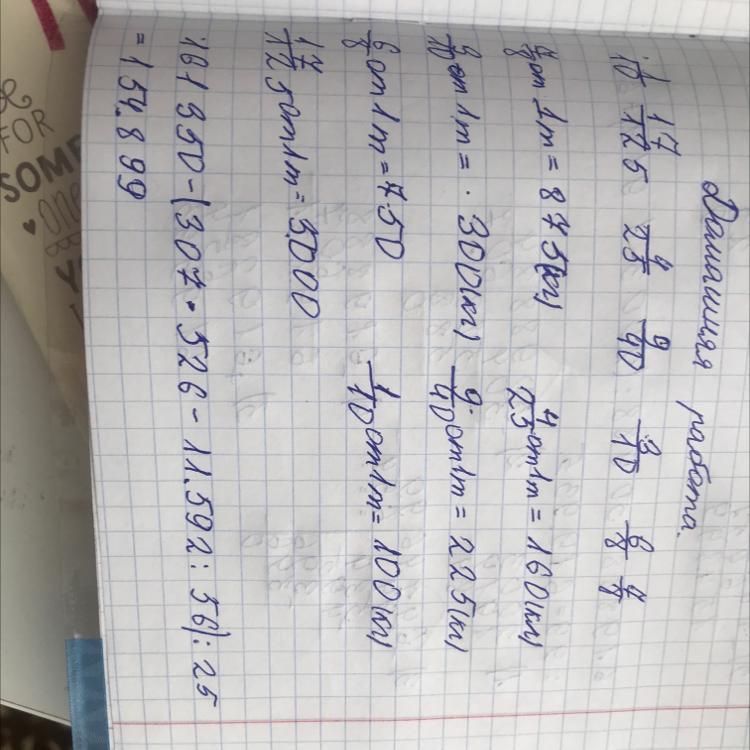 Домашняя работа.
1/10 17/125 4/25 9/40 3/10 6/8 7/8
7/8 от 1т = 875(кг) 4/25 от 1т = 160(кг)
3/10 от 1т = 300(кг) 9/40 от 1т = 225(кг)
6/8 от 1т = 750 1/10 от 1т = 100(кг)
161 950 - (307 · 526 - 11.592 : 56) : 25
= 154.899
FOR
SOME
one